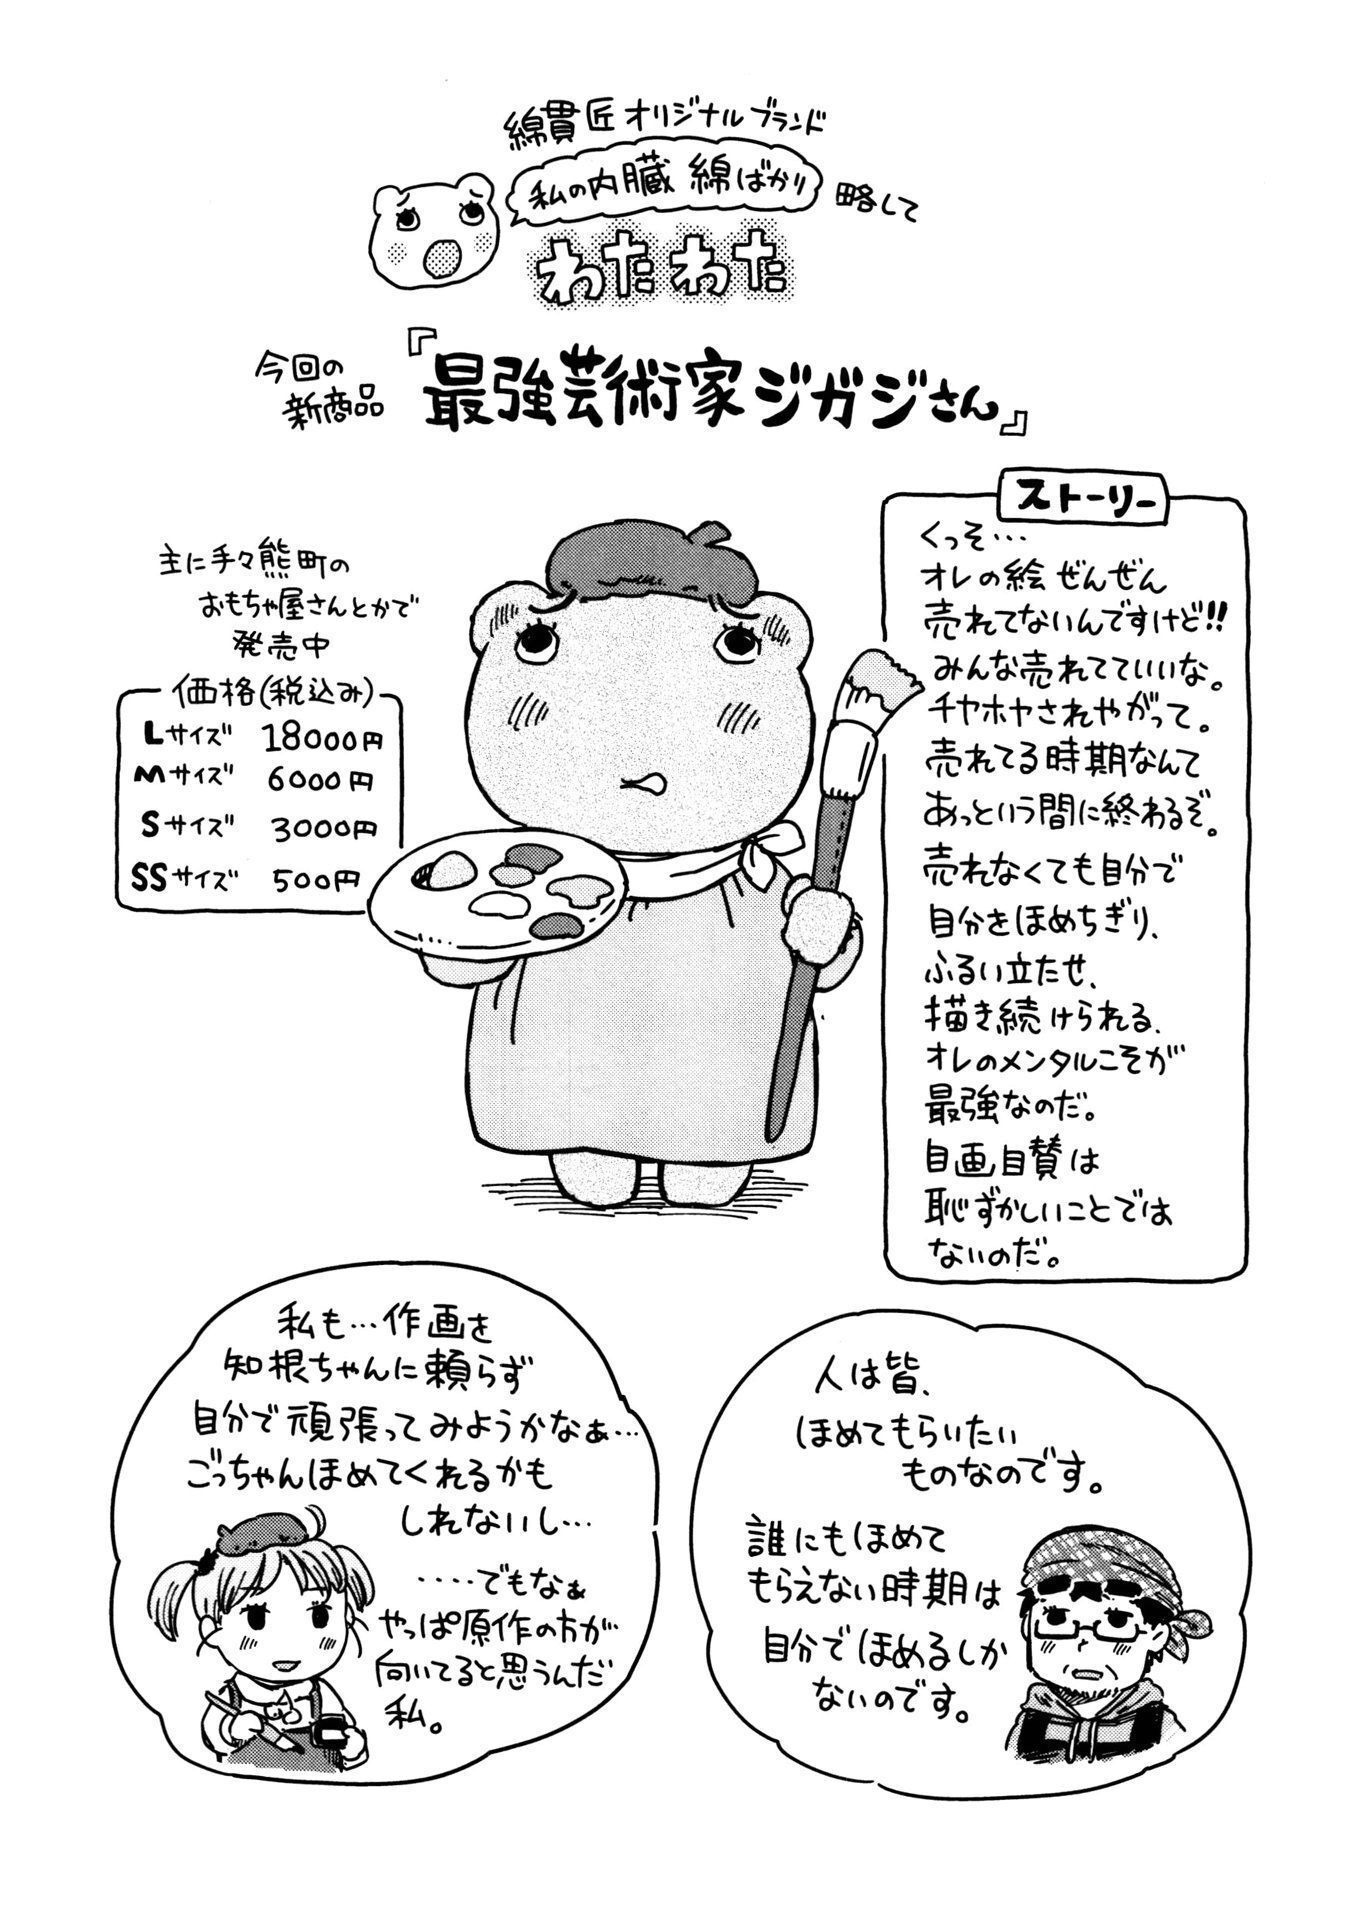 綿貫匠オリジナルブランド
私の内臓 綿ばかり
略して
わたわた
今回の
新商品
『最強芸術家ジガジさん』
主に手々熊町の
おもちゃ屋さんとかで
発売中
価格(税込み)
Lサイズ 18000円
Mサイズ 6000円
Sサイズ 3000円
SSサイズ 500円
ストーリー
くっそ…
オレの絵 ぜんぜん
売れてないんですけど!!
みんな売れてていいな。
チヤホヤされやがって。
売れてる時期なんて
あっという間に終わるぞ。
売れなくても自分で
自分をほめちぎり、
ふるい立たせ、
描き続けられる、
オレのメンタルこそが
最強なのだ。
自画自賛は
恥ずかしいことでは
ないのだ。
私も…作画を
知根ちゃんに頼らず
自分で頑張ってみようかなぁ…
ごっちゃんほめてくれるかも
しれないし…
‥‥でもなぁ
やっぱ原作の方が
向いてると思うんだ
私。
人は皆、
ほめてもらいたい
ものなのです。
誰にもほめて
もらえない時期は
自分でほめるしか
ないのです。